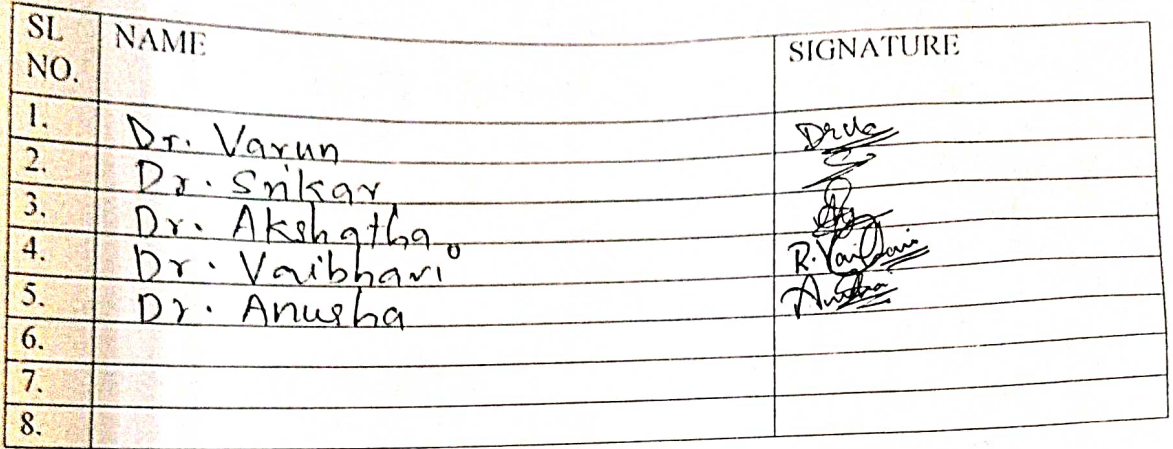 SL NO. NAME SIGNATURE
1. Dr. Varun
2. Dr. Srikar
3. Dr. Akshatha
4. Dr. Vaibhavi R. Vaibhavi
5. Dr. Anusha Anusha
6.
7.
8.